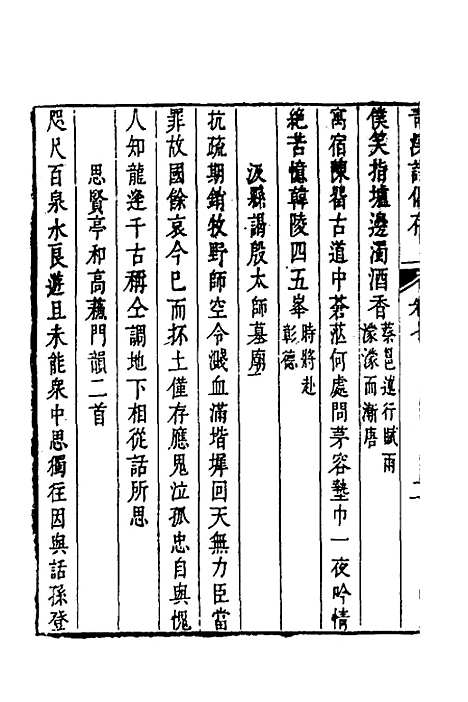 僕笑指壚邊濁酒香蔡邕述行賦雨濛濛而漸唐
寓宿陳畱古道中蒼茫何處問茅容墊巾一夜吟情
絶苦憶韓陵四五峯時將赴彰德
汲縣謁殷太師墓廟
抗疏期銷牧野師空令濺血滿堦墀回天無力臣當
罪故國餘哀今已而抔土僅存應鬼泣孤忠自與愧
人知龍逄千古稱仝調地下相從話所思
思賢亭和高蘓門韻二首
咫尺百泉水良遊且未能衆中思獨往因與話孫登